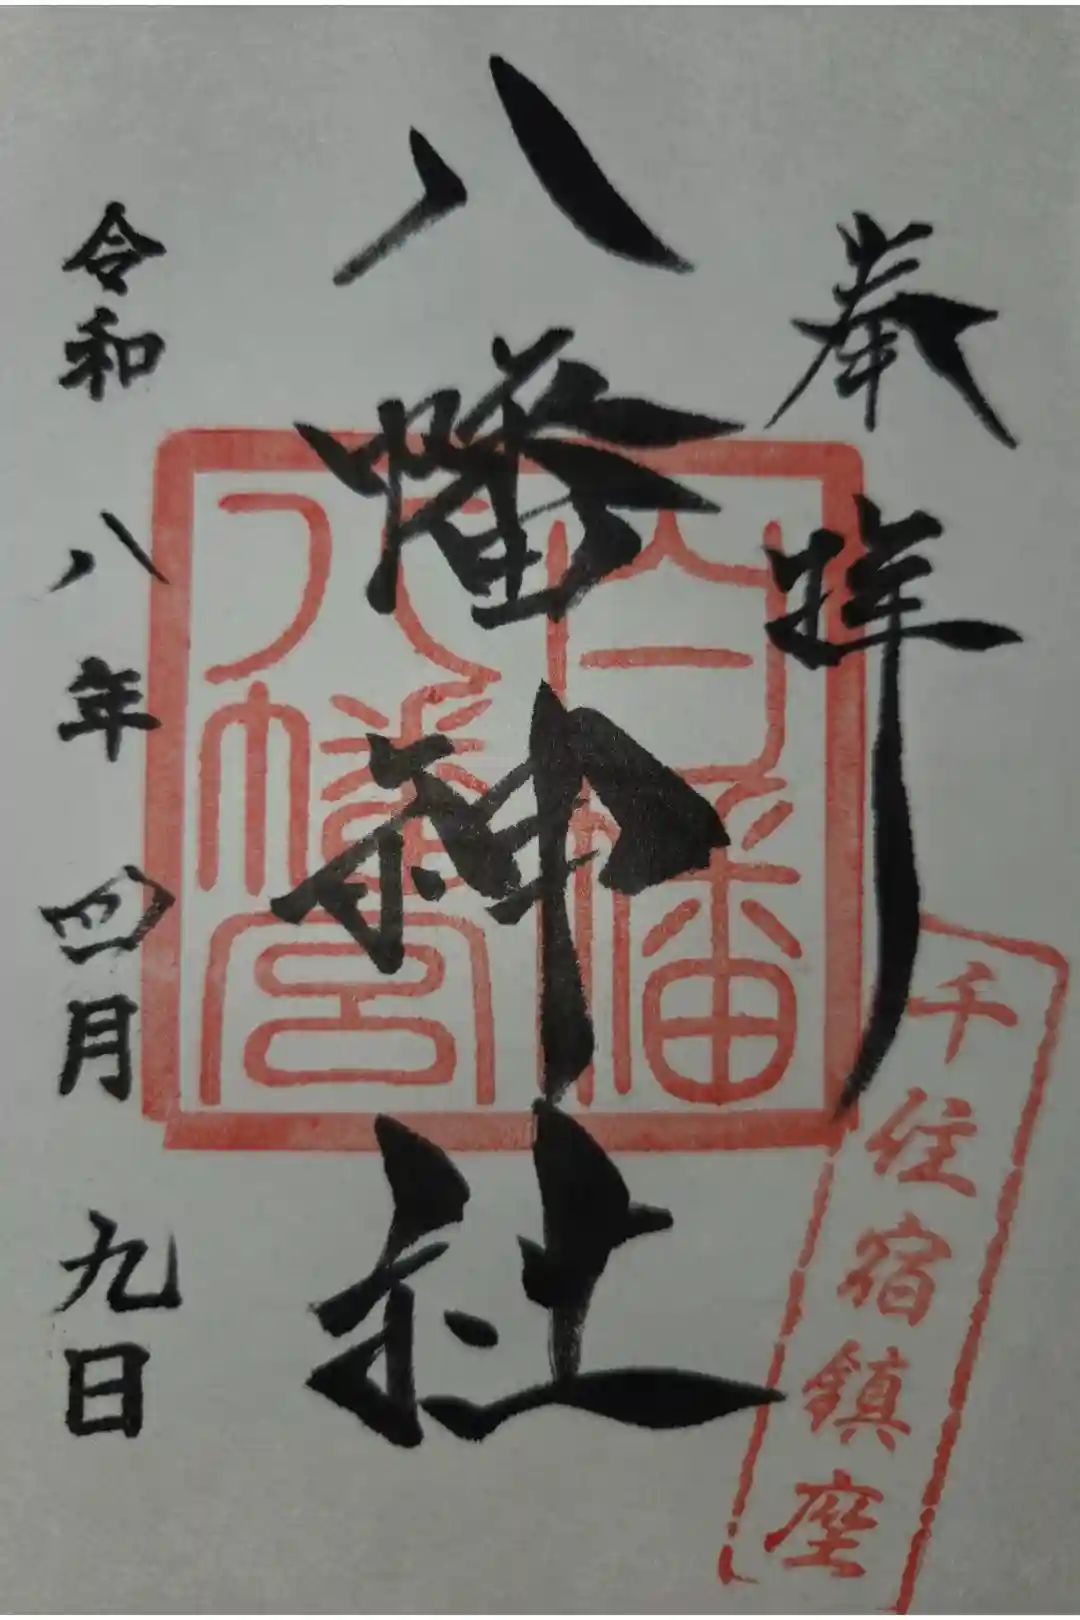 奉拝
千住宿鎮座
八幡神社
白幡
八幡宮
令和八年四月九日